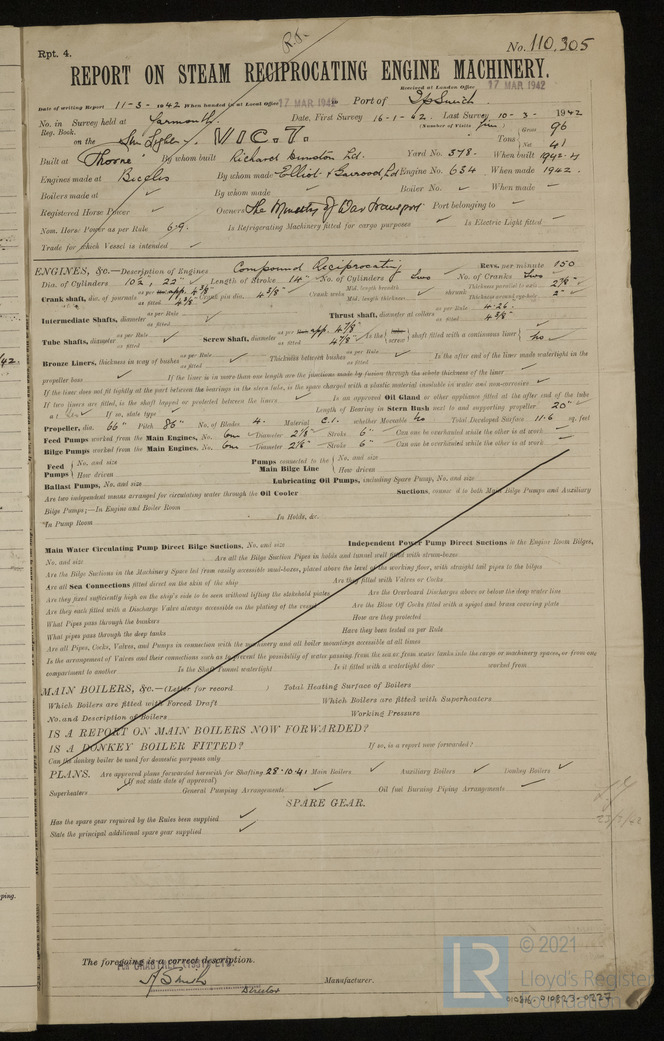 Rpt. 4.
R.F.
No. 110,305
REPORT ON STEAM RECIPROCATING ENGINE MACHINERY.
Received at London Office 17 MAR. 1942
Date of writing Report 11-3-1942 When handed in at Local Office 17 MAR. 1942 Port of Ipswich
No. in Survey held at Yarmouth. Date, First Survey 16-1-42. Last Survey 10-3-1942
Reg. Book. (Number of Visits
on the V.I.C.7. Tons Gross 96
Net 41
Built at Thorne By whom built Richard Dunston Ld. Yard No. 378. When built 1942
Engines made at Beccles By whom made Elliot & Garrood Ld Engine No. 634 When made 1942.
Boilers made at By whom made Boiler No. When made
Registered Horse Power Owners The Ministry of War Transport Port belonging to
Nom. Horse Power as per Rule Is Refrigerating Machinery fitted for cargo purposes Is Electric Light fitted
Trade for which Vessel is intended
ENGINES, &c.—Description of Engines Compound Reciprocating Revs. per minute 150
Dia. of Cylinders 10½, 22" Length of Stroke 14" No. of Cylinders Two No. of Cranks Two
Crank shaft, dia. of journals as per Rule app. 4 3/8" as fitted 4 3/8" Crank pin dia. 4 3/8" Crank webs Mid. length breadth Mid. length thickness shrunk Thickness parallel to axis 2 7/8" Thickness around eye-hole 2"
Intermediate Shafts, diameter as per Rule as fitted Thrust shaft, diameter at collars as per Rule 4.26. as fitted 4 3/8"
Tube Shafts, diameter as per Rule as fitted Screw Shaft, diameter as per Rule app. 4 7/8" as fitted 4 7/8" Is the screw shaft fitted with a continuous liner No
Bronze Liners, thickness in way of bushes as per Rule as fitted Thickness between bushes as per Rule as fitted Is the after end of the liner made watertight in the
propeller boss If the liner is in more than one length are the junctions made by fusion through the whole thickness of the liner
If the liner does not fit tightly at the part between the bearings in the stern tube, is the space charged with a plastic material insoluble in water and non-corrosive
If two liners are fitted, is the shaft lapped or protected between the liners Is an approved Oil Gland or other appliance fitted at the after end of the tube
If so, state type Length of Bearing in Stern Bush next to and supporting propeller 20"
Propeller, dia. 66" Pitch 86" No. of Blades 4. Material C.I. whether Moveable No Total Developed Surface 11.6 sq. feet
Feed Pumps worked from the Main Engines, No. One Diameter 2 1/8" Stroke 6" Can one be overhauled while the other is at work
Bilge Pumps worked from the Main Engines, No. One Diameter 2 1/8" Stroke 6" Can one be overhauled while the other is at work
Feed Pumps No. and size How driven Pumps connected to the Main Bilge Line No. and size How driven
Ballast Pumps, No. and size Lubricating Oil Pumps, including Spare Pump, No. and size
Are two independent means arranged for circulating water through the Oil Cooler Suctions, connected to both Main Bilge Pumps and Auxiliary
Bilge Pumps;—In Engine and Boiler Room
In Pump Room In Holds, &c.
Main Water Circulating Pump Direct Bilge Suctions, No. and size Independent Power Pump Direct Suctions to the Engine Room Bilges,
No. and size Are all the Bilge Suction Pipes in holds and tunnel well fitted with strum-boxes
Are the Bilge Suctions in the Machinery Space led from easily accessible mud-boxes, placed above the level of the working floor, with straight tail pipes to the bilges
Are all Sea Connections fitted direct on the skin of the ship Are they fitted with Valves or Cocks
Are they fixed sufficiently high on the ship's side to be seen without lifting the stokehold plates Are the Overboard Discharges above or below the deep water line
Are they each fitted with a Discharge Valve always accessible on the plating of the vessel Are the Blow Off Cocks fitted with a spigot and brass covering plate
What Pipes pass through the bunkers How are they protected
What pipes pass through the deep tanks Have they been tested as per Rule
Are all Pipes, Cocks, Valves, and Pumps in connection with the machinery and all boiler mountings accessible at all times
Is the arrangement of Valves and their connections such as to prevent the possibility of water passing from the sea or from water tanks into the cargo or machinery spaces, or from one
compartment to another Is the Shaft Tunnel watertight Is it fitted with a watertight door worked from
MAIN BOILERS, &c.—(Letter for record ) Total Heating Surface of Boilers
Which Boilers are fitted with Forced Draft Which Boilers are fitted with Superheaters
No. and Description of Boilers Working Pressure
IS A REPORT ON MAIN BOILERS NOW FORWARDED?
IS A DONKEY BOILER FITTED? If so, is a report now forwarded?
Can the donkey boiler be used for domestic purposes only
PLANS. Are approved plans forwarded herewith for Shafting 28.10.41 Main Boilers Auxiliary Boilers Donkey Boilers
(If not state date of approval)
Superheaters General Pumping Arrangements Oil fuel Burning Piping Arrangements
SPARE GEAR.
Has the spare gear required by the Rules been supplied
State the principal additional spare gear supplied
The foregoing is a correct description.
Director Manufacturer.
LR © 2021
Lloyd's Register
Foundation
010816-010823-0227